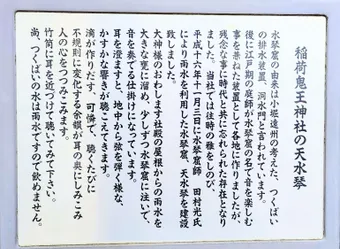 稲荷鬼王神社の天水琴
水琴窟の由来は小堀遠州の考えた、つくばい
の排水装置、洞水門と言われています。
後に江戸期の庭師が水琴窟の名で音を楽しむ
事を兼ねた装置として各地に作りましたが、
残念な事に時代と共に忘れられた存在となり
ました。当社では往時の雅をしのび、
平成十六年十一月三日に水琴窟師 田村光氏
により雨水を利用した水琴窟、天水琴を建設
致しました。
大神様のおわします社殿の屋根からの雨水を
大きな甕に溜め、少しずつ水琴窟に注いで、
音を奏でる仕掛けになっています。
耳を澄ますと、地中から弦を弾く様な、
かすかな響きが聴こえてきます。
滴が作りだす、可憐で、聴くたびに
不規則に変化する余韻が耳の奥にしみこみ
人の心をつつみこみます。
竹筒に耳を近づけて聴いてみて下さい。
尚、つくばいの水は雨水ですので飲めません。